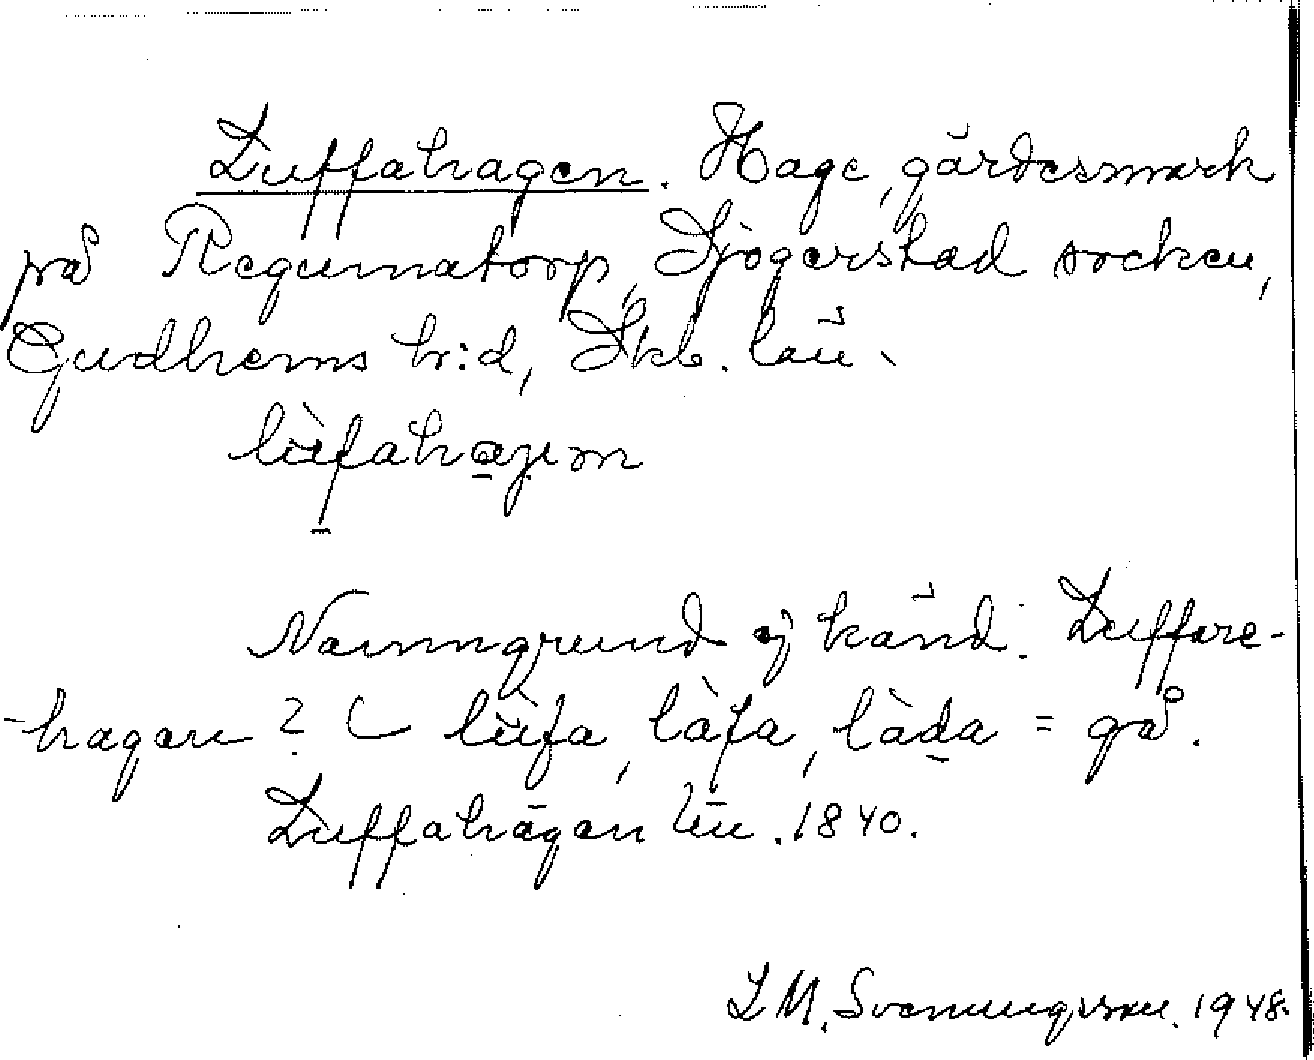 Luffahagen. Hage, gärdesmark
på Regumatorp, Sjogerstad socken,
Gudhems h:d, Skb. län.
lùfahagen
Namngrund ej känd. Luffare-
-hagen? < lùfa, làfa, làda = gå.
Luffahagen Un. 1840.
L M. Svenungsson. 1948.